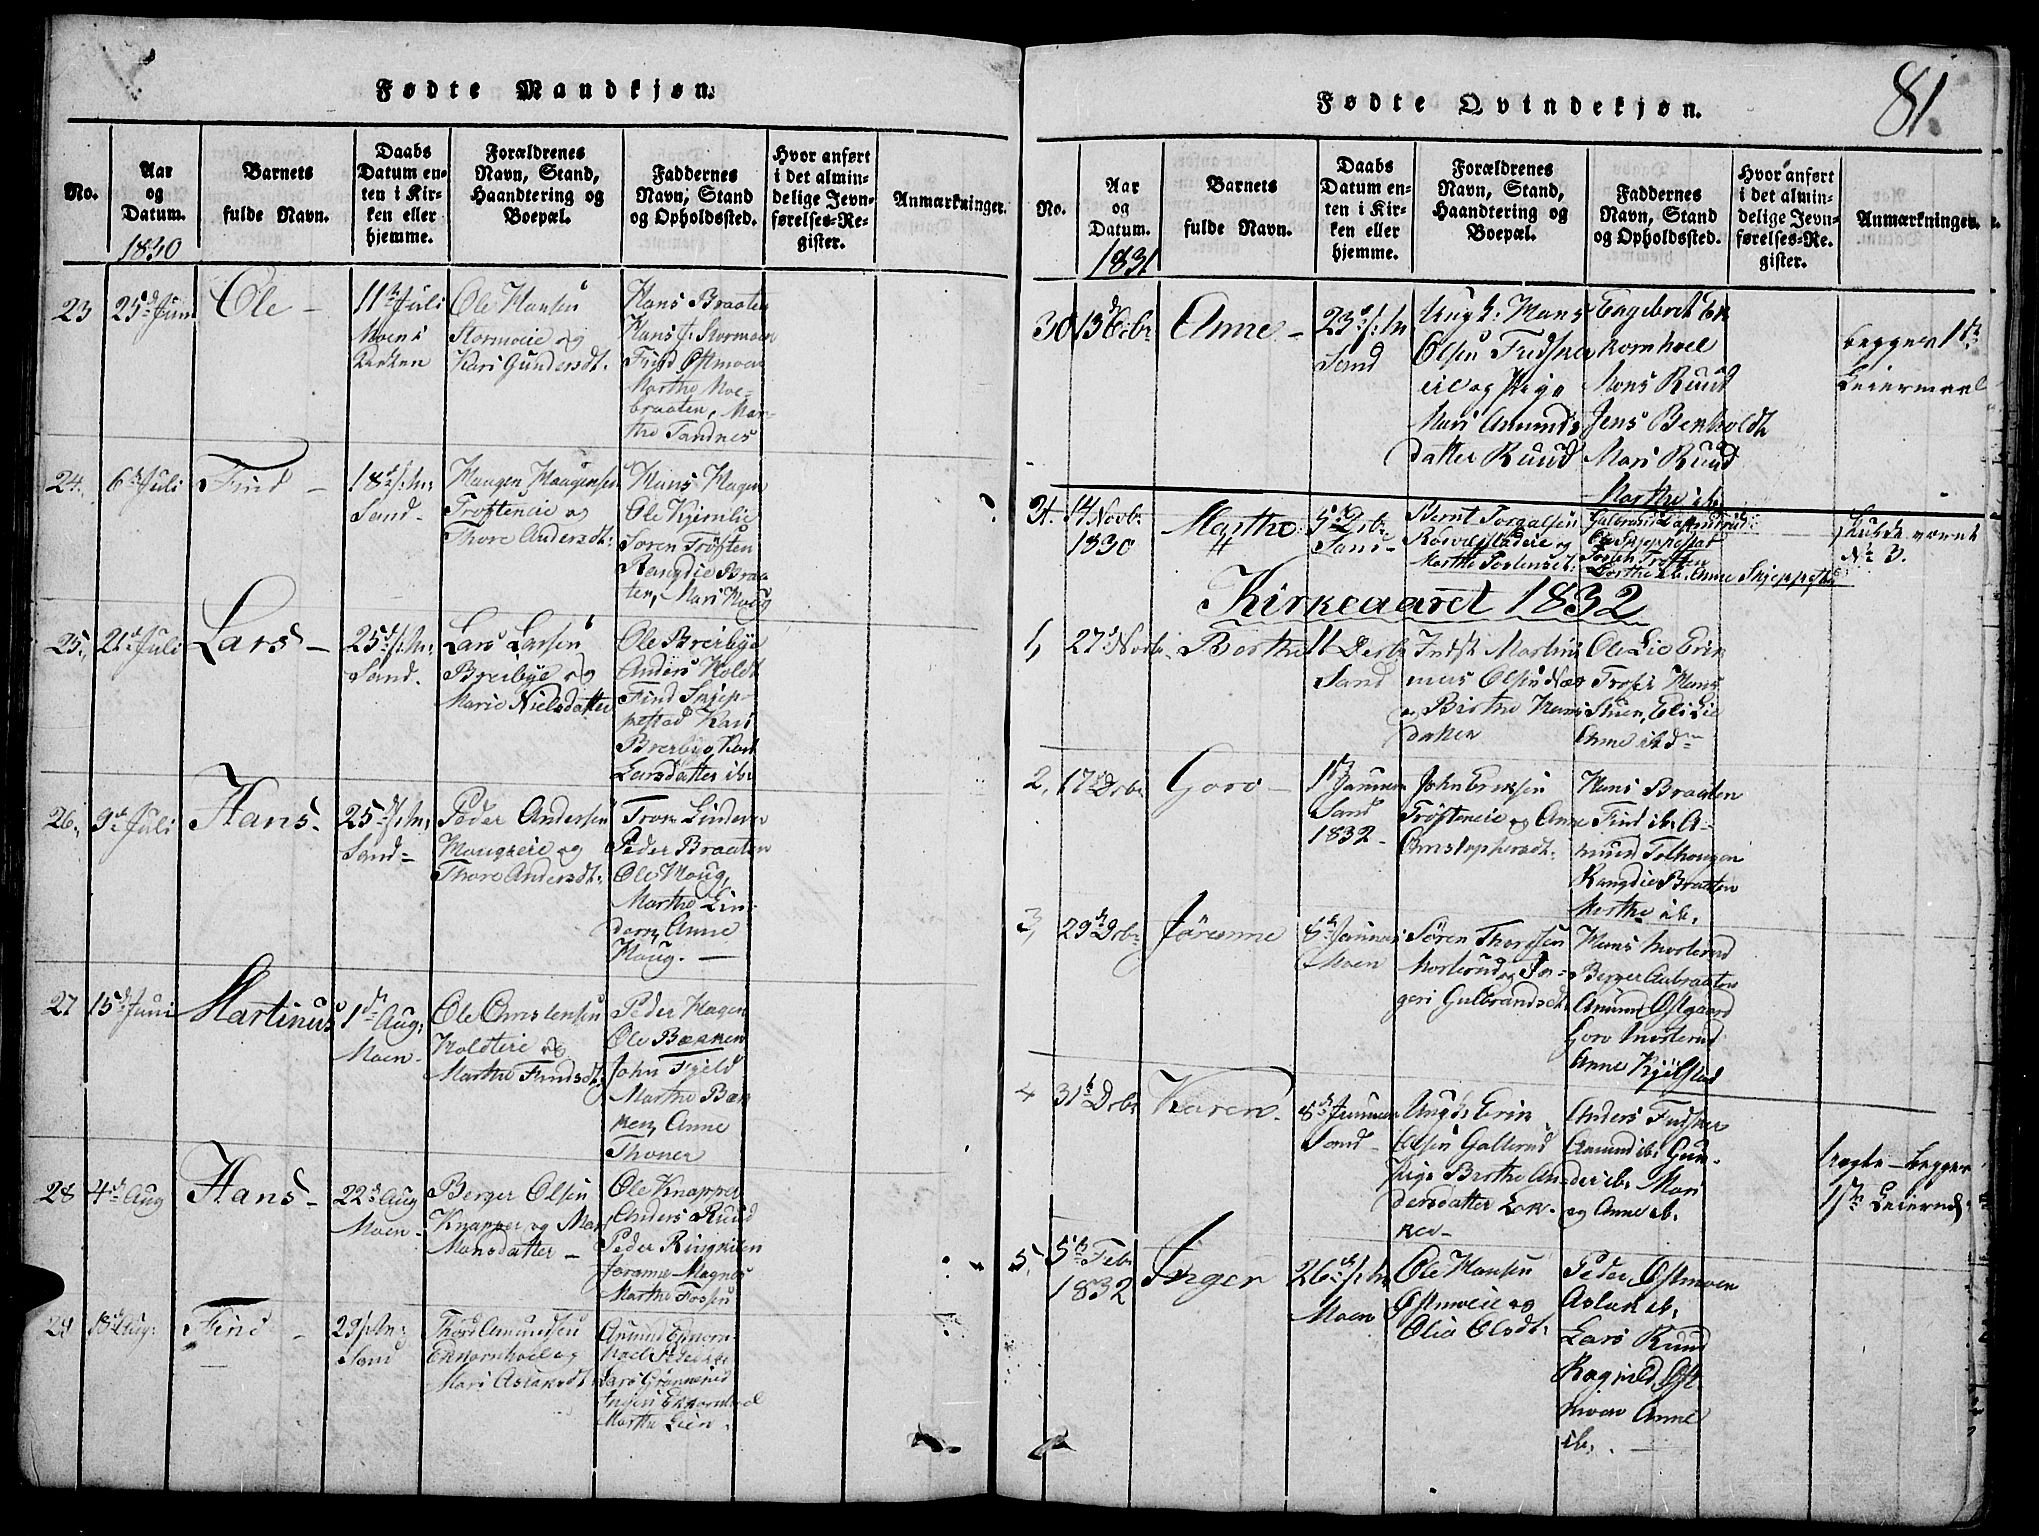 Fødte Mandkjøn.
No.
Aar og Datum.
1830
Barnets fulde Navn.
Daabs Datum enten i Kirken eller hjemme.
Forældrenes Navn, Stand, Haandtering og Boepæl.
Faddernes Navn, Stand og Opholdssted.
Hvor anført i det almindelige Jevnførelses-Register.
Anmærkninger.
23
25d Juni
Ole –
11te Juli
Moens
Kirken
Ole Hansen
Stormoeie og
Kari Gundersdt.
Hans Braaten
Hans f. Stormoen
Find Østmoen
Marthe Moe-
braaten, Mar-
the Sandnes
24.
6te Juli
Find –
18de s: m:
Sand –
Haagen Haagensen
Trøfteneie og
Thore Andersdt:
Hans Hagen
Ole Kjemlie
Søren Trøften
Rangdie Braa-
ten, Mari Houg
25,
21de Juli
Lars –
25de s: m:
Sand.
Lars Larsen
Breibye og
Marie Nielsdatter
Ole Breibye
Anders Holdt
Find Skjep-
pestad Kari
Breibye, Kari
Larsdatter ib.
26,
9de Juli
Hans –
25de s: m:
Sand –
Peder Andersen
Hougseie og
Thore Andersdt:
Tron Linderen
Peder Braaten
Ole Houg,
Marthe Lin-
dern, Anne
Houg. –
27
15de Juni
Martinus
1de Aug:
Moen –
Ole Christensen
Holdteie og
Marthe Findsdt:
Peder Hagen
Ole Bakken
John Fjeld
Marthe Bak-
ken, Anne
Thoner
28
4de Aug
Hans –
22de Aug
Moen –
Berger Olsen
Knapper og Mari
Monsdatter –
Ole Knapper
Anders Ruud
Peder Ringkilen
Joranne Magnes
Marthe Fossen
29
18de Aug:
Find –
29 s: m:
Sand
Thord Amundsen
Ekkornhoel og
Mari Aslaksdt
Amund Ekkorn-
hoel
Lars Grønnerud
Inger Ekkornhoel
Marthe Lien.
Fødte Qvindekjøn.
81.
No.
Aar og Datum.
1831
Barnets fulde Navn.
Daabs Datum enten i Kirken eller hjemme.
Forældrenes Navn, Stand, Haandtering og Boepæl.
Faddernes Navn, Stand og Opholdssted.
Hvor anført i det almindelige Jevnførelses-Register.
Anmærkninger.
30
13de Octbr
Anne –
23de s: m
Sand
Ungk: Hans
Olsen Fredsker
eie og Pige
Mari Amunds
datter Ruud
Engebret Ek
kornhoel
Mons Ruud
Jens Benholdt
Mari Ruud
Marthe ib.
begges 1ste
Leiermaal
31.
14 Novbr
1830
Marthe
5te Decbr
Sand –
Bernt Torgalsen
Marthe Torstensdt:
Ole Skjeppestad
Torsten Trøften
Dorthe ib. Anne Skjeppestad
skulde været
No 3.
Kirkeaaret 1832
1,
27de Novbr.
Berthe
11 Decbr
Sand
Indst Martin
mus Olsen Næs
og Birthe Hans
datter
Ole Lie Erik
Frøse Hans
Stuen, Eli Lie
Anne ibd
2,
17de Decbr
Goro –
1ste Januar
Sand
1832 –
John Eriksen
Trøfteneie og Anne
Christophersdt.
Hans Braaten
Find ib. A-
mund Tolhougen
Rangdie Braaten
Marthe ib.
3,
29de Decbr
Jöranne
8de Januar
Moen
Søren Thoresen
Morterud og In-
geri Gulbrandsdt.
Hans Morterud
Berger Aubraaten
Amund Østgaard
Goro Morterud
Anne Kjølstad
4
31te Decbr
Karen.
8de Januar
Sand –
Ungk: Erik
Olsen Gallerud
Pige Birthe An
dersdatter Lok-
ker –
Anders Fredsker
Amund ib. Gun-
der ib. Mari
og Anne ib.
begges
1ste Leierm.
5,
5te Febr
1832
Inger
26de s: m
Moen
Ole Hansen
Østmoeie og
Olia Olsdt:
Peder Østmoen
Aslak ib.
Lars Ruud
Ragnild Øst-
moen Anne
ib. –